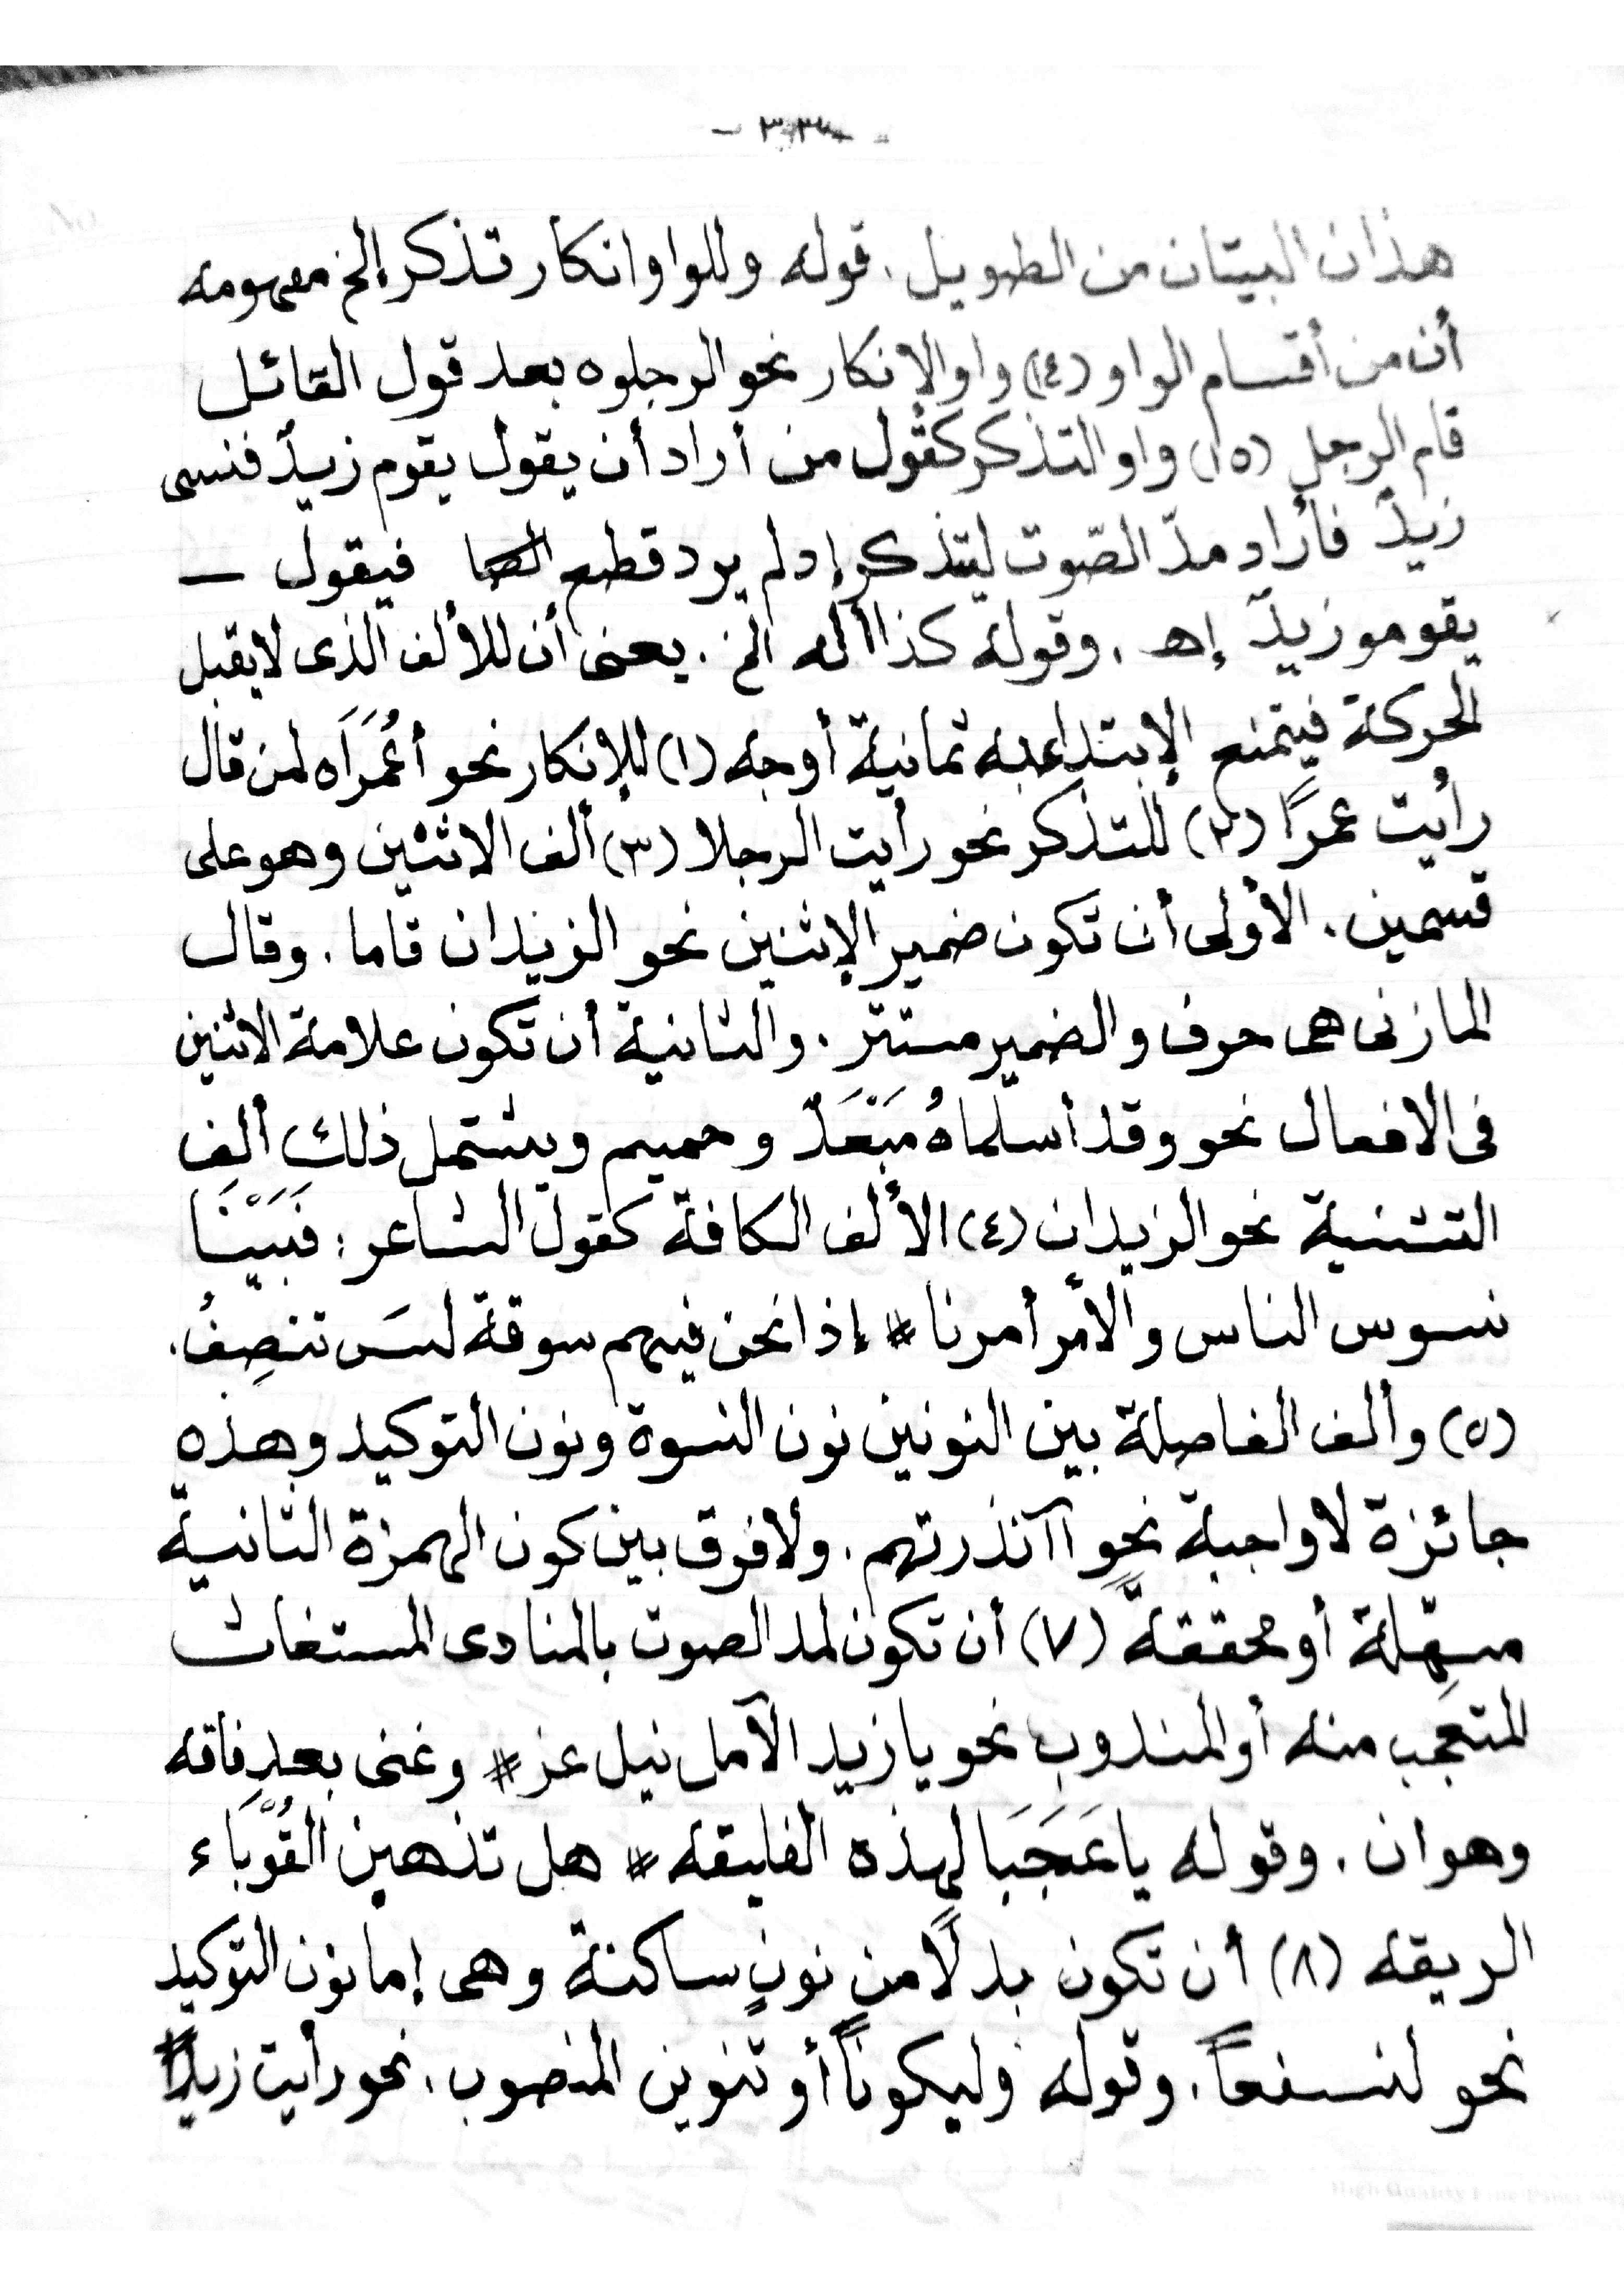 هذان البيتان من الطويل . قوله وللواو انكار تذكر إلخ مفهومه
أن من أقسام الواو (١٤) واو الإنكار نحو الرجلوه بعد قول القائل
قام الرجل (١٥) واو التذكر كقول من أراد أن يقول يقوم زيدٌ فنسى
زيدٌ فأراد مدّ الصّوت ليتذكر إد لم يرد قطع فيقول —
يقومو زيدٌ إهـ . وقوله كذا أله الخ . يعنى أن للألف الذى لا يقبل
الحركة فيتمنع الإبتداء به ثمانية أوجه (١) للإنكار نحو أعُمَرَاه لمن قال
رأيت عمرًا (٢) للتذكر نحو رأيت الرجلا (٣) ألف الاثنين وهو على
قسمين . الأولى أن تكون ضمير الإثنين نحو الزيدان قاما . وقال
المازنى هى حرف والضمير مستتر . والثانية أن تكون علامة الاثنين
فى الافعال نحو وقد أسلماهُ مَبْعَدٌ وحميم ويشتمل ذلك ألف
التثنية نحو الزيدان (٤) الألف الكافة كقول الشاعر : فَبَيْنَا
نسوس الناس والأمر أمرنا # إذا نحن فيهم سوقة لسَ تنصِفُ.
(٥) وألف الفاصلة بين النونين نون النسوة ونون التوكيد وهذه
جائزة لا واجبة نحو اآنذرتهم . ولا فرق بين كون الهمزة الثانية
مسهّلة أو محققةً (٧) أن تكون لمد الصوت بالمنادى المستغاث
المتعجب منه أو المندوب نحو يا زيد الآمل نيل عز # وغنى بعد فاقه
وهوان . وقوله يا عَجَبَا لهذه الفليقه # هل تذهبن القُوَّبَاء
الريقه (٨) أن تكون بدلًا من نونٍ ساكنة وهى إما نون التوكيد
نحو لنسفعاً . وقوله وليكوناً أو تنوين المنصوب . نحو رأيت زيداً